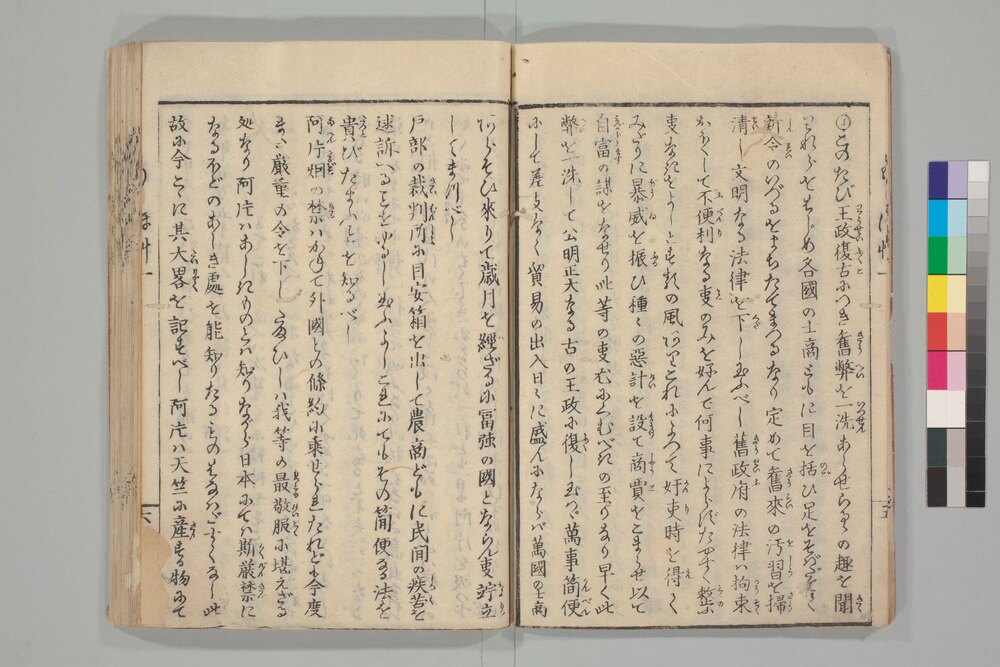 このたび王政復古につき舊弊を一洗あらせらるゝの趣を聞
これらをはじめ各國の士商ともに目を括ひ足をそばだてゝ
新令のいづるをまちたてまつるなり定めて舊來の汚習を掃
清し文明なる法律を下し玉ふべし舊政府の法律は拘束
かたくして不便利なる事のみを好んで何事によらずたやすく整
事なきをよしとするの風ありこれによつて奸吏時を得
みだりに暴威を振ひ種々の惡計を設て商賈をこまらせ以て
自富の謀をなせり此等の事尤にくむべきの至りなり早く此
弊を一洗して公明正大なる古の王政に復し玉ひ萬事簡便
にして差支なく貿易の出入日々に盛んにならば萬國の士商
あらそひ來りて歳月を經ざるに冨強の國とならん事竚立
してまつべし
戸部の裁判所に目安箱を出して農商どもに民間の疾苦を
述訴いることをゆるし玉ふよしこれにてもその簡便なる法を
貴びたまふことを知るべし
阿片烟の禁はかねて外國との條約に乘せられたれども今度
また嚴重の令を下したまひしは我等の最敬服に堪えざる
処なり阿片はあしきものとは知りながら日本にては斯嚴禁に
なるほどのあしき處を能知りたるものはすくなし此
故に今こゝに其大畧を記すべし阿片は天竺に産する物にて